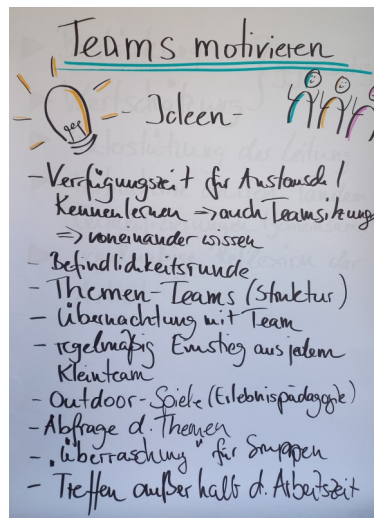 Teams motivieren
Ideen-
- Verfügungszeit für Austausch /
Kennenlernen => auch Teamsitzung
=> voneinander wissen
- Befindlichkeitsrunde
- Themen-Teams (Struktur)
- Übernachtung mit Team
- regelmäßig Einstieg aus jedem
Kleinteam
- Outdoor-Spiele (Erlebnispädagogik)
- Abfrage d. Themen
- „Überraschung" für Gruppen
- Treffen außerhalb d. Arbeitszeit